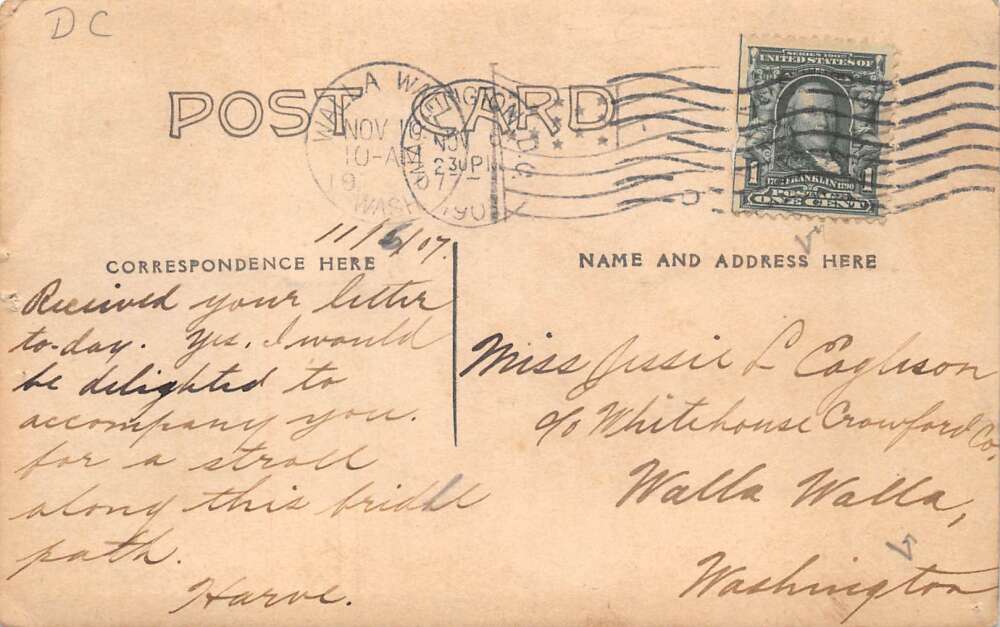 DC
POST CARD
WALLA WALLA
NOV 19
10-AM
WASH
WASHINGTON, D.C.
NOV
230PM
1907
SERIES 1902
UNITED STATES OF
1 1706 FRANKLIN 1790 1
POSTAGE
ONE CENT
11/6/07.
CORRESPONDENCE HERE
Received your letter
to-day. Yes, I would
be delighted to
accompany you.
for a stroll
along this bridle
path.
Harve.
NAME AND ADDRESS HERE
Miss Jessie L Eagleson
c/o Whitehouse Crawford Co,
Walla Walla,
Washington